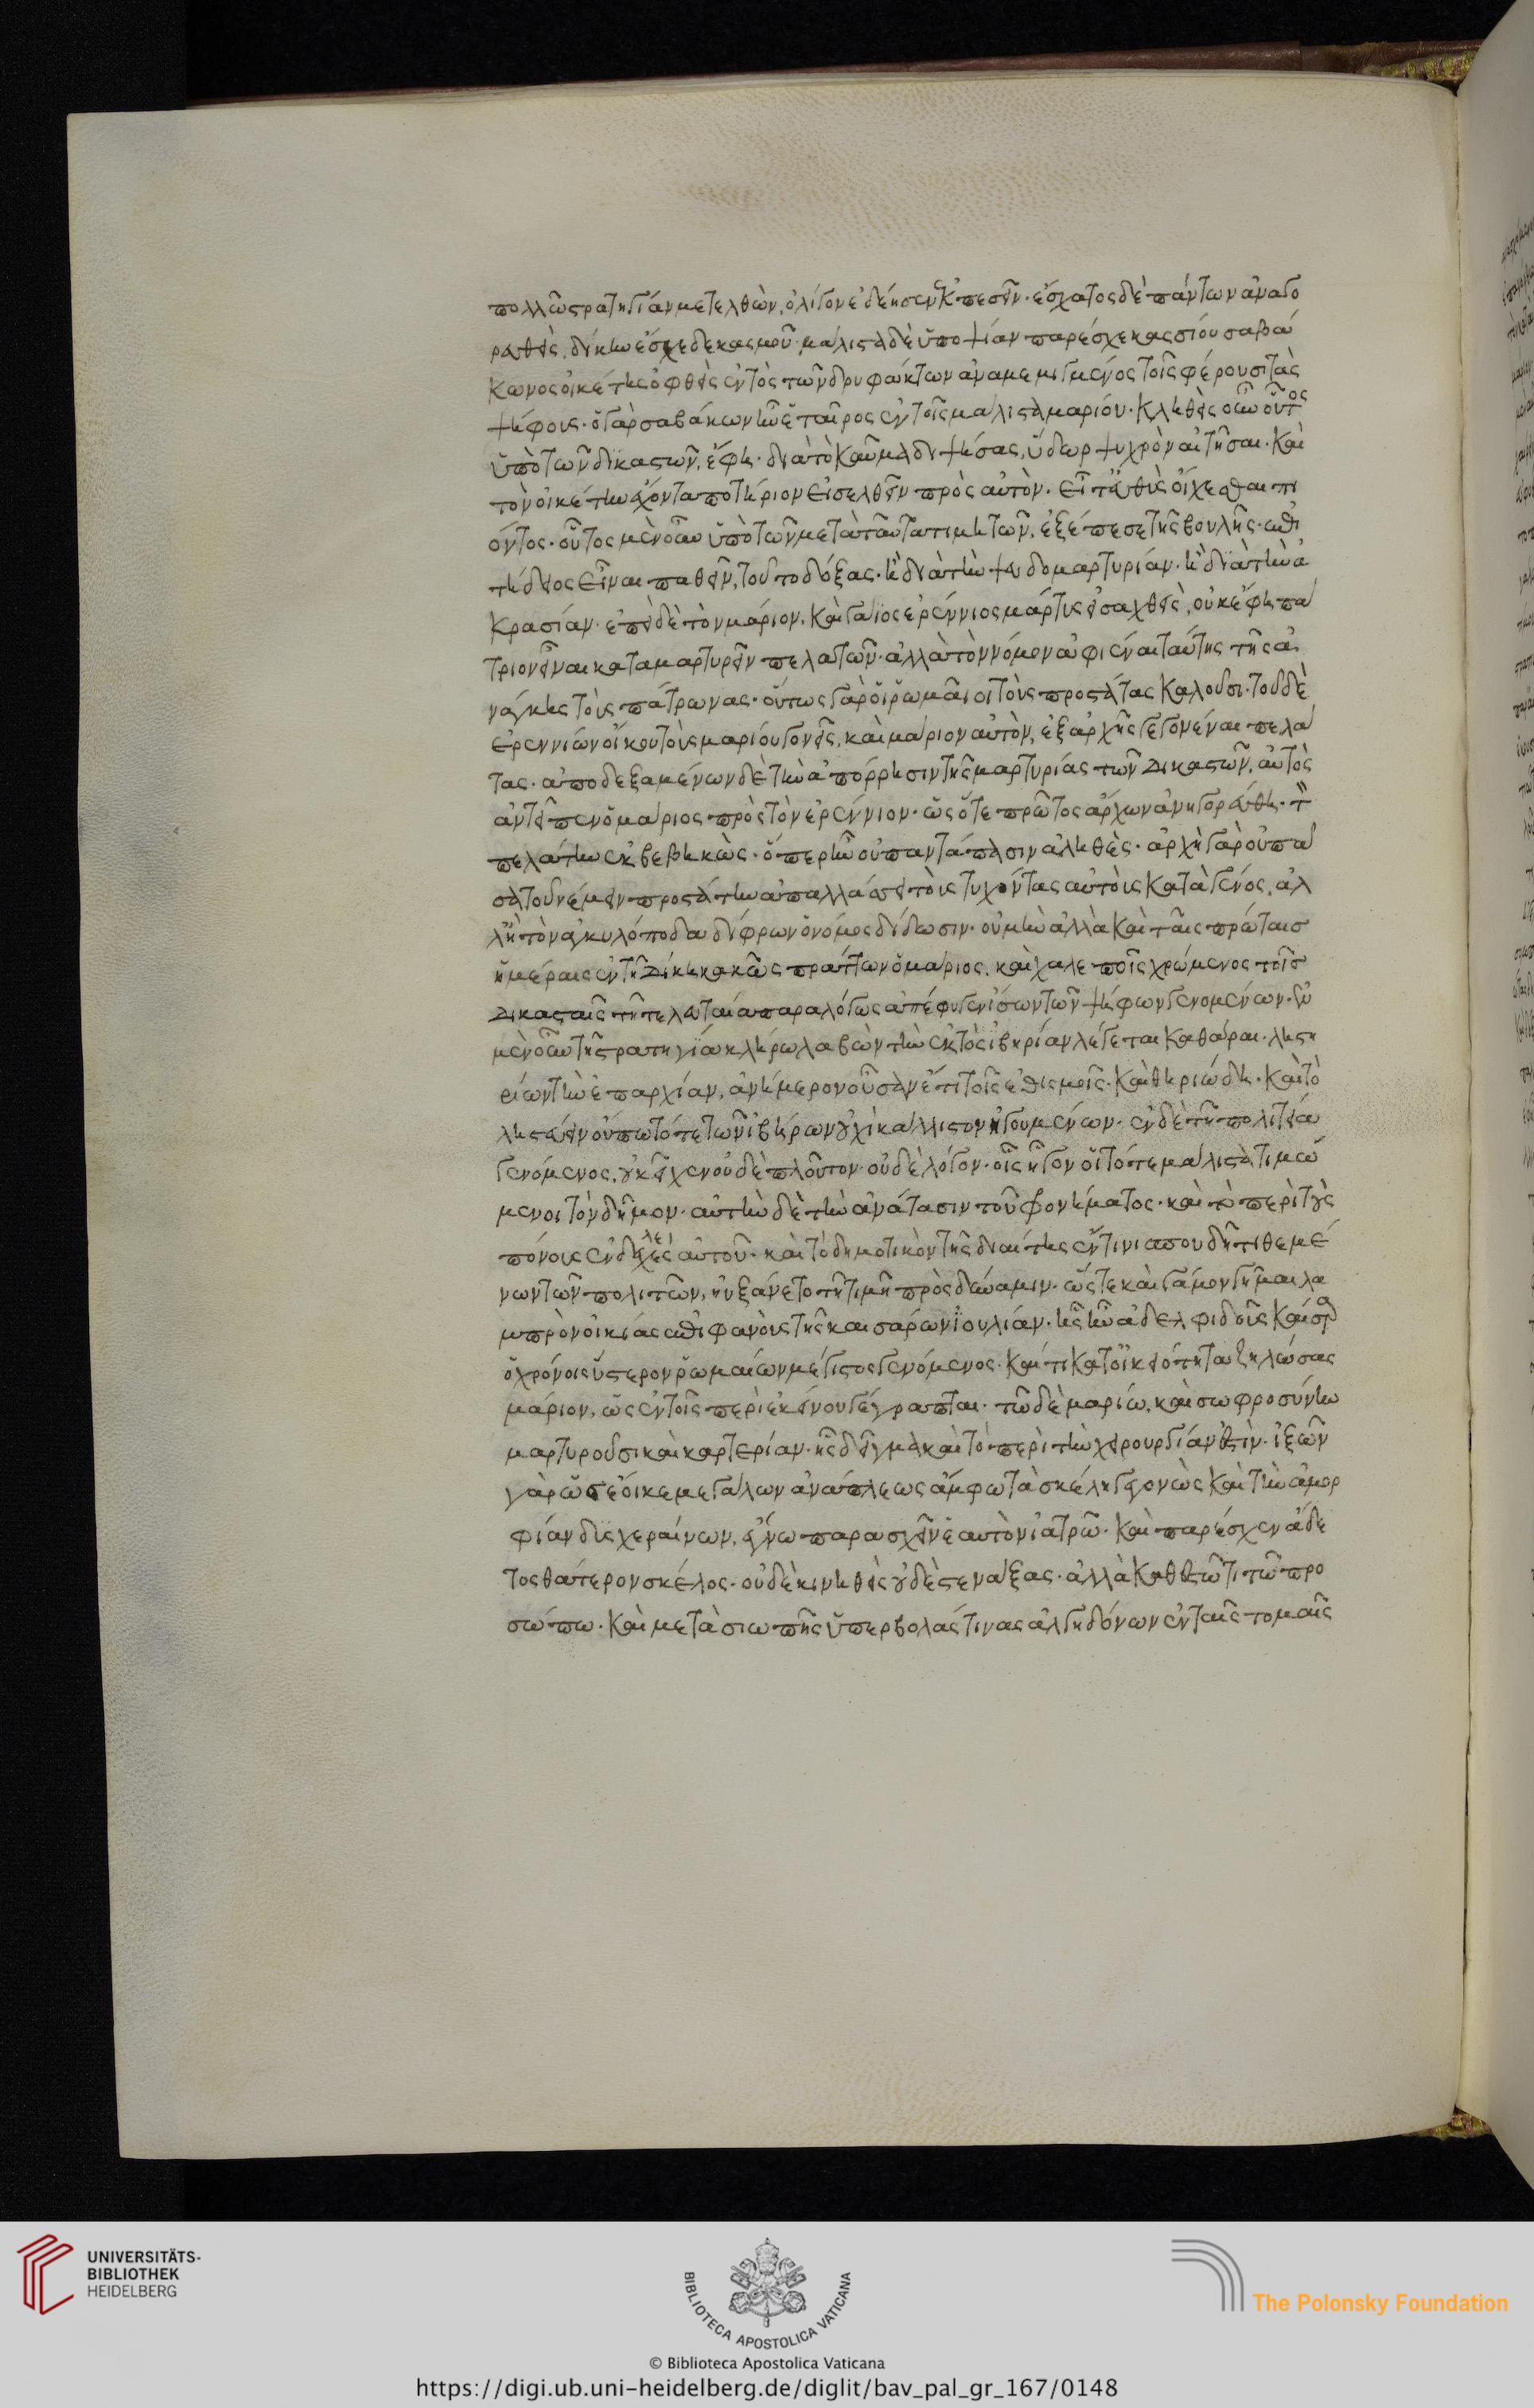 πολλῶ στρατηγίαν μετελθὼν, ὀλίγον ἐδέησεν ἐκπεσεῖν· ἔσχατος δὲ πάντων ἀναγο
ρευθεὶς, δίκην ἔσχε δεκασμοῦ· μάλιστα δὲ ὑποψίαν παρέσχε κασσίου σαβά
κωνος οἰκέτης ὀφθεὶς ἐντὸς τῶν δρυφάκτων ἀναμεμιγμένος τοῖς φέρουσι τὰς
ψήφους· ὁ γὰρ σαβάκων ἦν ἑταῖρος ἐν τοῖς μάλιστα μαρίου· κληθεὶς οὖν οὗτος
ὑπὸ τῶν δικαστῶν, ἔφη· διὰ τὸ καῦμα διψήσας, ὕδωρ ψυχρὸν αἰτῆσαι· καὶ
τὸν οἰκέτην ἔχοντα ποτήριον εἰσελθεῖν πρὸς αὐτὸν· εἶτ' εὐθὺς οἴχεσθαι πι
όντος· οὗτος μὲν οὖν ὑπὸ τῶν μετὰ ταῦτα τιμητῶν, ἐξέπεσε τῆς βουλῆς· ἐπι
τήδειος εἶναι παθεῖν, τοῦτο δόξας· ἢ διὰ τὴν ψευδομαρτυρίαν· ἢ διὰ τὴν ἀ
κρασίαν· ἐπεὶ δὲ τὸν μάριον, καὶ γάϊος ἐρέννιος μάρτυς εἰσαχθεὶς, οὐκ ἔφη πά
τριον εἶναι καταμαρτυρεῖν πελατῶν· ἀλλὰ τὸν νόμον ἀφιέναι ταύτης τῆς ἀ
νάγκης τοὺς πάτρωνας· οὕτως γὰρ οἱ ῥωμαῖοι τοὺς προστάτας καλοῦσι· τοῦ δὲ
ἐρεννίων οἴκου τοὺς μαρίου γονεῖς, καὶ μάριον αὐτὸν, ἐξ ἀρχῆς γεγονέναι πελά
τας· ἀποδεξαμένων δὲ τὴν ἀπόρρησιν τῆς μαρτυρίας τῶν δικαστῶν, αὐτὸς
ἀντεῖπεν ὁ μάριος πρὸς τὸν ἐρέννιον· ὡς ὅτε πρῶτος ἄρχων ἀνηγορεύθη· τὸν
πελάτην ἐκβεβηκὼς· ὅπερ ἦν οὐ παντάπασιν ἀληθὲς· ἀρχὴ γὰρ οὐ πᾶ
σα τοῦ νέμειν προστάτην ἀπαλλάσσει τοὺς τυχόντας αὐτοὺς κατὰ γένος, ἀλ
λ' ἢ τὸν ἀγκυλόποδα δίφρον ὁ νόμος δίδωσιν· οὐ μὴν ἀλλὰ καὶ ταῖς πρώταις
ἡμέραις ἐν τῇ δίκῃ κακῶς πράττων ὁ μάριος, καὶ χαλεποῖς χρώμενος τοῖς
δικασταῖς τῇ τελευταία παραλόγως ἀπέφυγεν ἴσων τῶν ψήφων γενομένων· ἐν
μὲν οὖν τῆ στρατηγία κλήρω λαβὼν τὴν ἐκτὸς ἰβηρίαν λέγεται καθᾶραι· ληστη
ρίων τὴν ἐπαρχίαν, ἀνήμερον οὖσαν ἔτι τοῖς ἐθισμοῖς· καὶ θηριώδη· καὶ τὸ
ληστεύειν οὔπω τότε τῶν ἰβήρων οὐχὶ κάλλιστον ἡγουμένων· ἐν δὲ τῆ πολιτεία
γενόμενος, οὐκ εἶχεν οὐδὲ πλοῦτον· οὐδὲ λόγον· οἷς ἦγον οἱ τότε μάλιστα τιμώ
μενοι τὸν δῆμον· αὐτὴν δὲ τὴν ἀνάτασιν τοῦ φρονήματος· καὶ τὸ περὶ τοὺς
πόνους ἐνδελεχὲς αὐτοῦ· καὶ τὸ δημοτικὸν τῆς διαίτης ἔν τινι σπουδῆ τιθεμέ
νων τῶν πολιτῶν, ηὐξάνετο τῆ τιμῆ πρὸς δύναμιν· ὥστε καὶ γάμον γῆμαι λα
μπρὸν οἰκίας ἐπιφανοὺς τῆς καισάρων ἰουλίαν· ἧς ἦν ἀδελφιδοῦς καῖσαρ
ὁ χρόνοις ὕστερον ῥωμαίων μέγιστος γενόμενος· καί τι κατ' οἰκειότητα ζηλώσας
μάριον, ὡς ἐν τοῖς περὶ ἐκείνου γέγραπται· τῶ δὲ μαρίω, καὶ σωφροσύνην
μαρτυροῦσι καὶ καρτερίαν· ἧς δεῖγμα καὶ τὸ περὶ τὴν χειρουργίαν ἐστὶν· ἰξῶν
γὰρ ὡς ἔοικε μεγάλων ἀνάπλεως ἄμφω τὰ σκέλη γεγονὼς καὶ τὴν ἀμορ
φίαν δυσχεραίνων, ἔγνω παρασχεῖν ἑαυτὸν ἰατρῶ· καὶ παρέσχεν ἄδε
τος θάτερον σκέλος· οὐδὲ κινηθεὶς οὐδὲ στενάξας· ἀλλὰ καθεστῶτι τῶ προ
σώπω· καὶ μετὰ σιωπῆς ὑπερβολάς τινας ἀλγηδόνων ἐν ταῖς τομαῖς
UNIVERSITÄTS-
BIBLIOTHEK
HEIDELBERG
BIBLIOTECA APOSTOLICA VATICANA
© Biblioteca Apostolica Vaticana
The Polonsky Foundation
https://digi.ub.uni-heidelberg.de/diglit/bav_pal_gr_167/0148